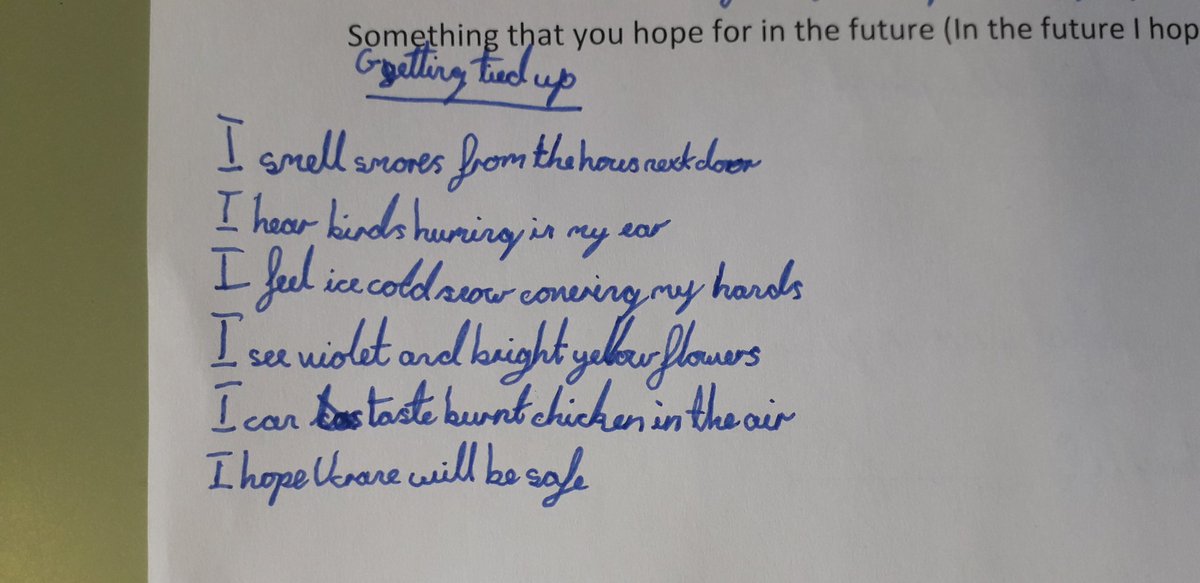 Something that you hope for in the future (In the future I hop
Getting tied up
I smell smores from the hous next door
I hear birds huming in my ear
I feel ice cold snow convering my hands
I see violet and bright yellow flowers
I can taste burnt chicken in the air
I hope Ukrane will be safe